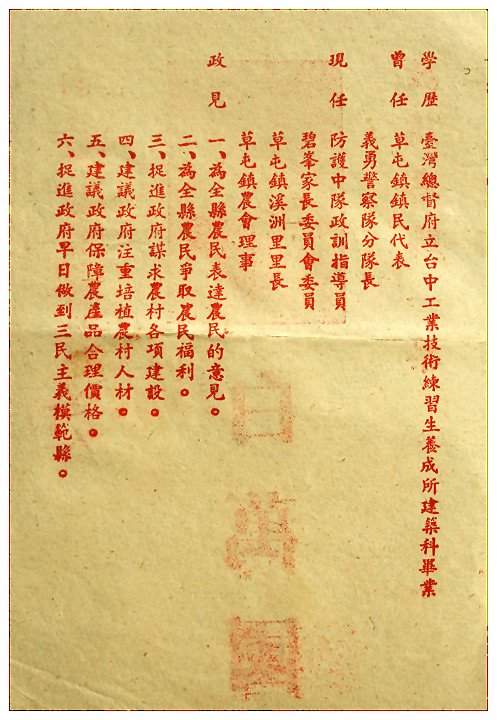 學歷 臺灣總督府立台中工業技術練習生養成所建築科畢業
曾任 草屯鎮鎮民代表
義勇警察隊分隊長
現任 防護中隊政訓指導員
碧峯家長委員會委員
草屯鎮溪洲里里長
草屯鎮農會理事
政見 一、為全縣農民表達農民的意見。
二、為全縣農民爭取農民福利。
三、捉進政府謀求農村各項建設。
四、建議政府注重培植農村人材。
五、建議政府保障農產品合理價格。
六、捉進政府早日做到三民主義模範縣。